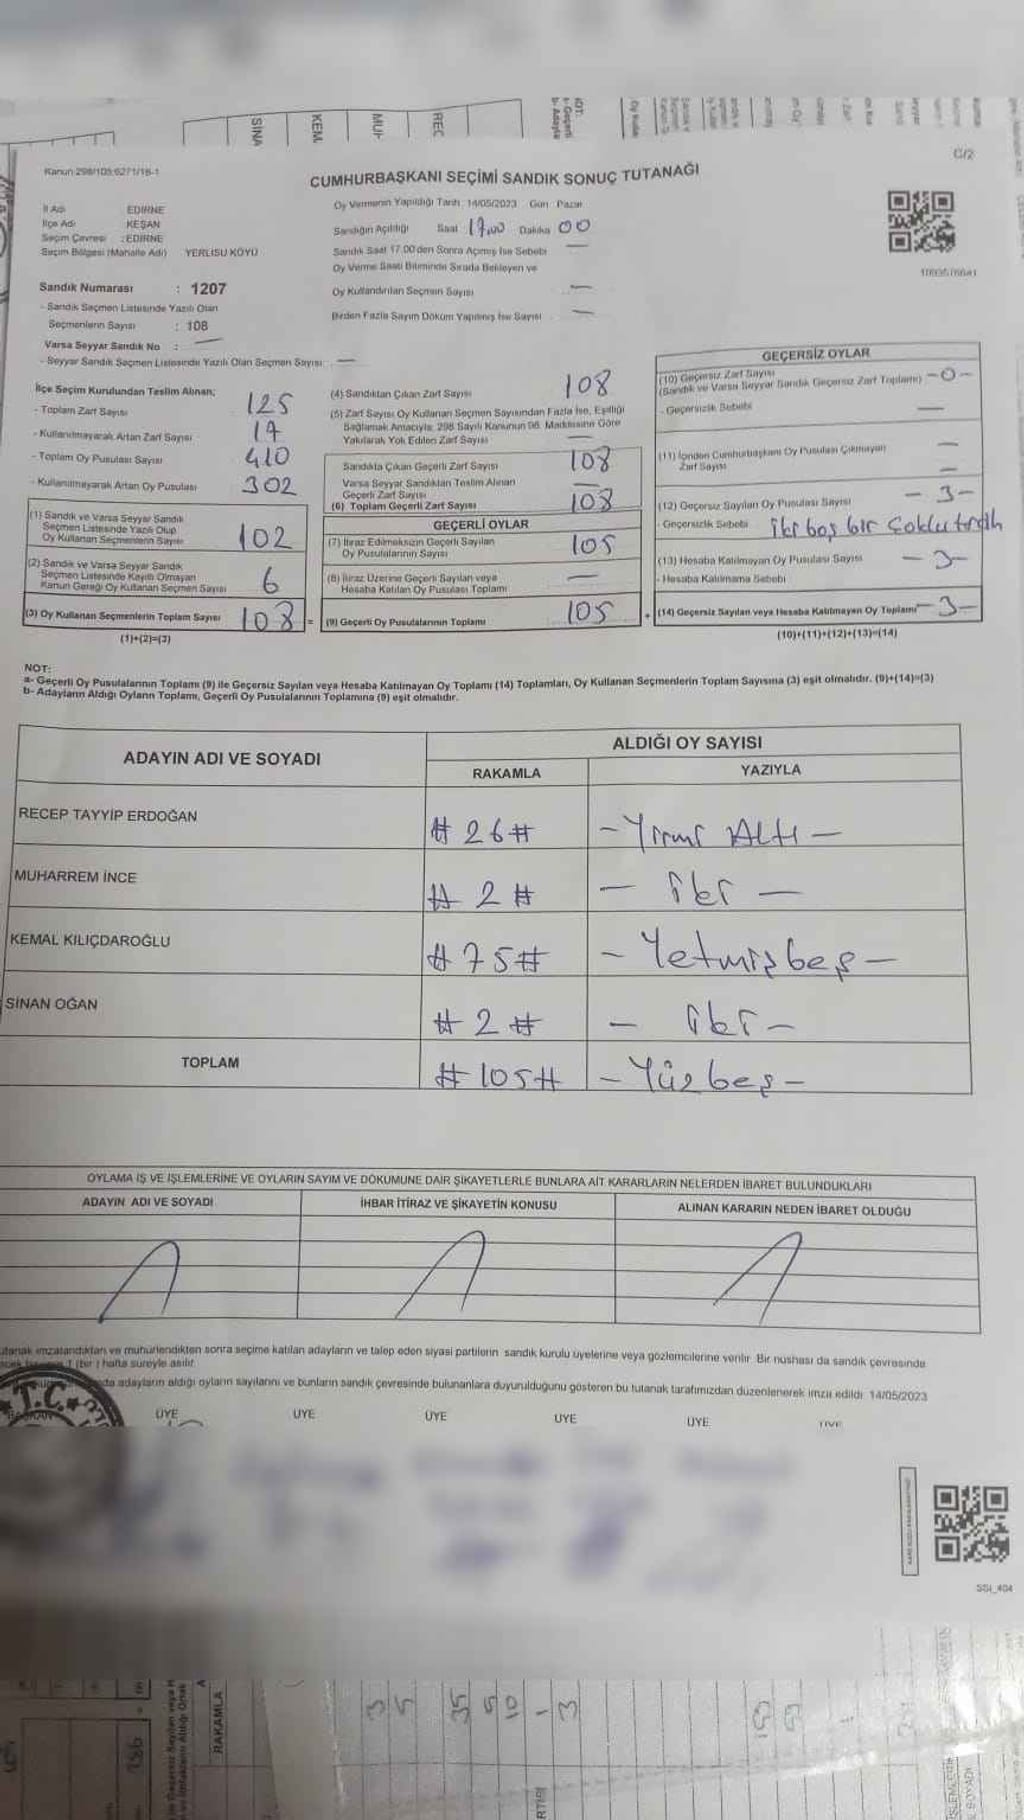 SINA
KEM
MUH
REC
C/2
Kanun 298/105:6271/18-1
CUMHURBAŞKANI SEÇİMİ SANDIK SONUÇ TUTANAĞI
İl Adı EDİRNE
İlçe Adı KEŞAN
Seçim Çevresi : EDİRNE
Seçim Bölgesi (Mahalle Adı) YERLISU KÖYÜ
Oy Vermenin Yapıldığı Tarih 14/05/2023 Gün Pazar
Sandığın Açıldığı Saat 17.00 Dakika 00
Sandık Saat 17.00'den Sonra Açılmış İse Sebebi —
Oy Verme Saati Bitiminde Sırada Bekleyen ve
Oy Kullandırılan Seçmen Sayısı —
Birden Fazla Sayım Döküm Yapılmış İse Sayısı —
Sandık Numarası : 1207
- Sandık Seçmen Listesinde Yazılı Olan
Seçmenlerin Sayısı : 108
Varsa Seyyar Sandık No : —
- Seyyar Sandık Seçmen Listesinde Yazılı Olan Seçmen Sayısı —
İlçe Seçim Kurulundan Teslim Alınan;
- Toplam Zarf Sayısı 125
- Kullanılmayarak Artan Zarf Sayısı 17
- Toplam Oy Pusulası Sayısı 410
- Kullanılmayarak Artan Oy Pusulası 302
(1) Sandık ve Varsa Seyyar Sandık
Seçmen Listesinde Yazılı Olup
Oy Kullanan Seçmenlerin Sayısı 102
(2) Sandık ve Varsa Seyyar Sandık
Seçmen Listesinde Kayıtlı Olmayan
Kanun Gereği Oy Kullanan Seçmen Sayısı 6
(3) Oy Kullanan Seçmenlerin Toplam Sayısı 108 =
(1)+(2)=(3)
(4) Sandıktan Çıkan Zarf Sayısı 108
(5) Zarf Sayısı Oy Kullanan Seçmen Sayısından Fazla İse, Eşitliği
Sağlamak Amacıyla, 298 Sayılı Kanunun 98. Maddesine Göre
Yakılarak Yok Edilen Zarf Sayısı —
Sandıkta Çıkan Geçerli Zarf Sayısı 108
Varsa Seyyar Sandıktan Teslim Alınan
Geçerli Zarf Sayısı —
(6) Toplam Geçerli Zarf Sayısı 108
GEÇERLİ OYLAR
(7) İtiraz Edilmeksizin Geçerli Sayılan
Oy Pusulalarının Sayısı 105
(8) İtiraz Üzerine Geçerli Sayılan veya
Hesaba Katılan Oy Pusulası Toplamı —
(9) Geçerli Oy Pusulalarının Toplamı 105 +
GEÇERSİZ OYLAR
(10) Geçersiz Zarf Sayısı
(Sandık ve Varsa Seyyar Sandık Geçersiz Zarf Toplamı) -0-
- Geçersizlik Sebebi —
(11) İçinden Cumhurbaşkanı Oy Pusulası Çıkmayan
Zarf Sayısı —
(12) Geçersiz Sayılan Oy Pusulası Sayısı -3-
- Geçersizlik Sebebi iki boş bir çoklu tercih
(13) Hesaba Katılmayan Oy Pusulası Sayısı -3-
- Hesaba Katılmama Sebebi
(14) Geçersiz Sayılan veya Hesaba Katılmayan Oy Toplamı -3-
(10)+(11)+(12)+(13)=(14)
NOT:
a- Geçerli Oy Pusulalarının Toplamı (9) ile Geçersiz Sayılan veya Hesaba Katılmayan Oy Toplamı (14) Toplamları, Oy Kullanan Seçmenlerin Toplam Sayısına (3) eşit olmalıdır. (9)+(14)=(3)
b- Adayların Aldığı Oyların Toplamı, Geçerli Oy Pusulalarının Toplamına (9) eşit olmalıdır.
ADAYIN ADI VE SOYADI
ALDIĞI OY SAYISI
RAKAMLA YAZIYLA
RECEP TAYYİP ERDOĞAN # 26 # - Yirmi Altı -
MUHARREM İNCE # 2 # - iki -
KEMAL KILIÇDAROĞLU # 75 # - Yetmişbeş -
SİNAN OĞAN # 2 # - iki -
TOPLAM # 105 # - Yüzbeş -
OYLAMA İŞ VE İŞLEMLERİNE VE OYLARIN SAYIM VE DÖKÜMÜNE DAİR ŞİKAYETLERLE BUNLARA AİT KARARLARIN NELERDEN İBARET BULUNDUKLARI
ADAYIN ADI VE SOYADI İHBAR İTİRAZ VE ŞİKAYETİN KONUSU ALINAN KARARIN NEDEN İBARET OLDUĞU
imzalandıktan ve mühürlendikten sonra seçime katılan adayların ve talep eden siyasi partilerin sandık kurulu üyelerine veya gözlemcilerine verilir. Bir nüshası da sandık çevresinde
1 (bir) hafta süreyle asılır.
adayların aldığı oyların sayılarını ve bunların sandık çevresinde bulunanlara duyurulduğunu gösteren bu tutanak tarafımızdan düzenlenerek imza edildi. 14/05/2023
T.C.
BAŞKAN ÜYE ÜYE ÜYE ÜYE ÜYE ÜYE
SSI_404
RAKAMLA
3
5
35
5
10
-
3